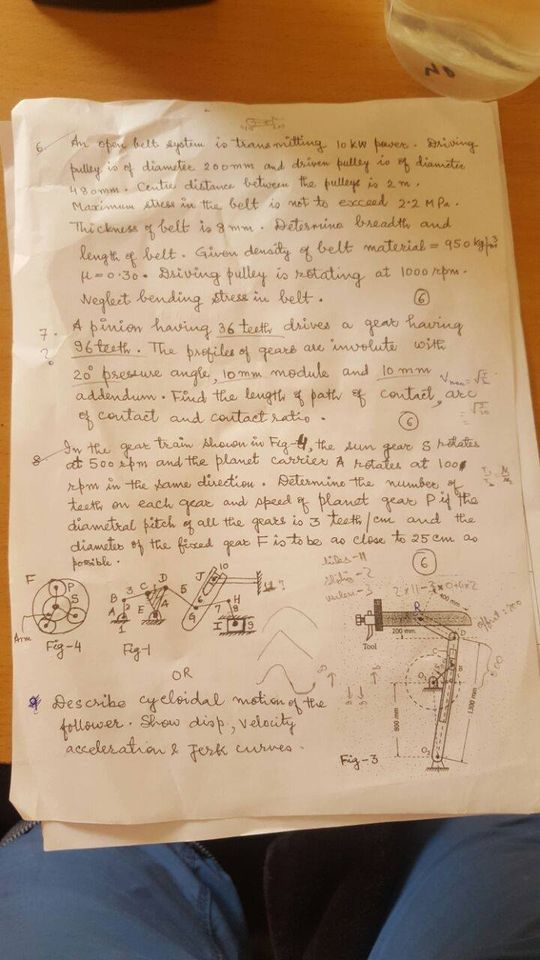 6. An open belt system is transmitting 10 kW power. Driving
pulley is of diameter 200mm and driven pulley is of diameter
480mm. Centre distance between the pulleys is 2 m.
Maximum stress in the belt is not to exceed 2.2 MPa.
Thickness of belt is 8 mm. Determine breadth and
length of belt. Given density of belt material = 950 kg/m³
μ = 0.30. Driving pulley is rotating at 1000 rpm.
Neglect bending stress in belt. (6)
7. A pinion having 36 teeth drives a gear having
? 96 teeth. The profiles of gears are involute with
20° pressure angle, 10 mm module and 10 mm
addendum. Find the length of path of contact, arc
of contact and contact ratio. (6)
8 In the gear train shown in Fig-4, the sun gear S rotates
at 500 rpm and the planet carrier A rotates at 100
rpm in the same direction. Determine the number of
teeth on each gear and speed of planet gear P if the
diametral pitch of all the gears is 3 teeth/cm and the
diameter of the fixed gear F is to be as close to 25 cm as
possible. (6)
F P S Arm
Fig-4
A B C D E A 1 2 3 5 G 6 7 H 8 I 9 J 10 11?
Fig-1
R
Tool
200 mm
D
800 mm
1300 mm
Fig-3
OR
Describe cycloidal motion of the
follower. Show disp, velocity
acceleration & Jerk curves.